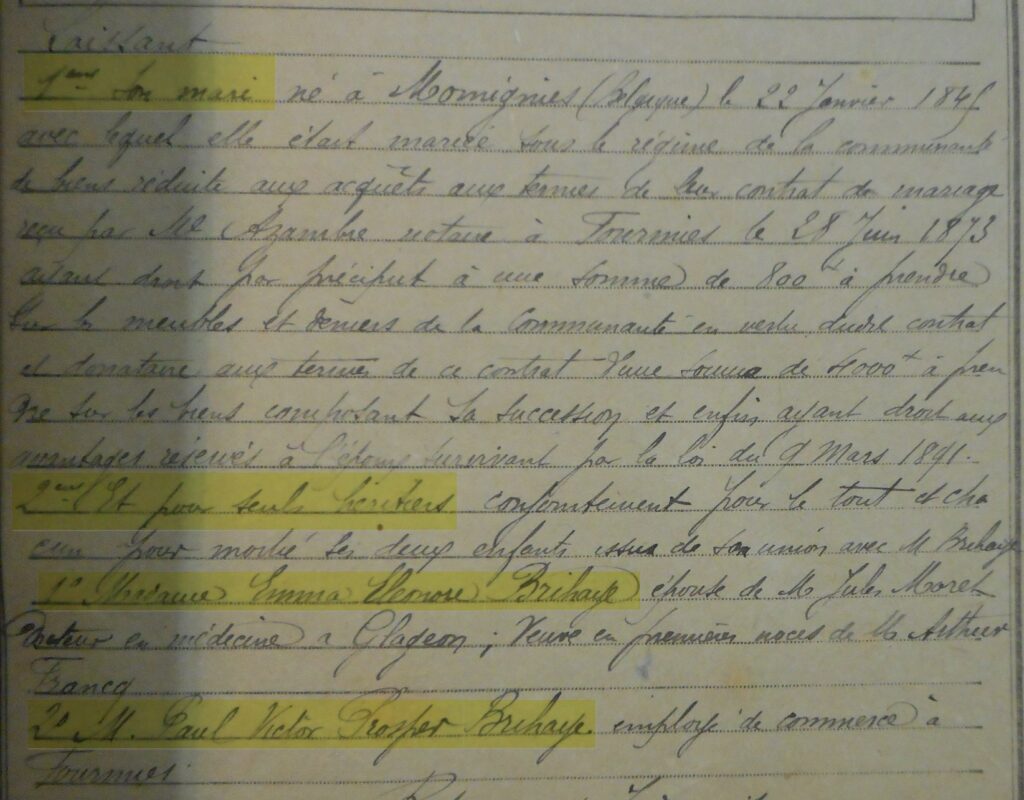 Laissant
1ent son mari né à Momignies (Belgique) le 22 Janvier 1845
avec lequel elle était mariée sous le régime de la communauté
de biens réduite aux acquêts aux termes de leur contrat de mariage
reçu par Me Azambre notaire à Fourmies le 28 Juin 1873
ayant droit par préciput à une somme de 800 f à prendre
sur les meubles et deniers de la communauté en vertu dudit contrat
et donataire aux termes de ce contrat d'une somme de 4000 f à pren
dre sur les biens composant sa succession et enfin ayant droit aux
avantages réservés à l'époux survivant par la loi du 9 Mars 1891.
2ent Et pour seuls héritiers conjointement pour le tout et cha
cun pour moitié ses deux enfants issus de son union avec M Brihaye
1° Madame Emma Eléonore Brihaye épouse de M. Jules Moret
Docteur en médecine a Glageon ; Veuve en premières noces de M. Arthur
Francq
2° M. Paul Victor Prosper Brihaye employé de commerce à
Fourmies.